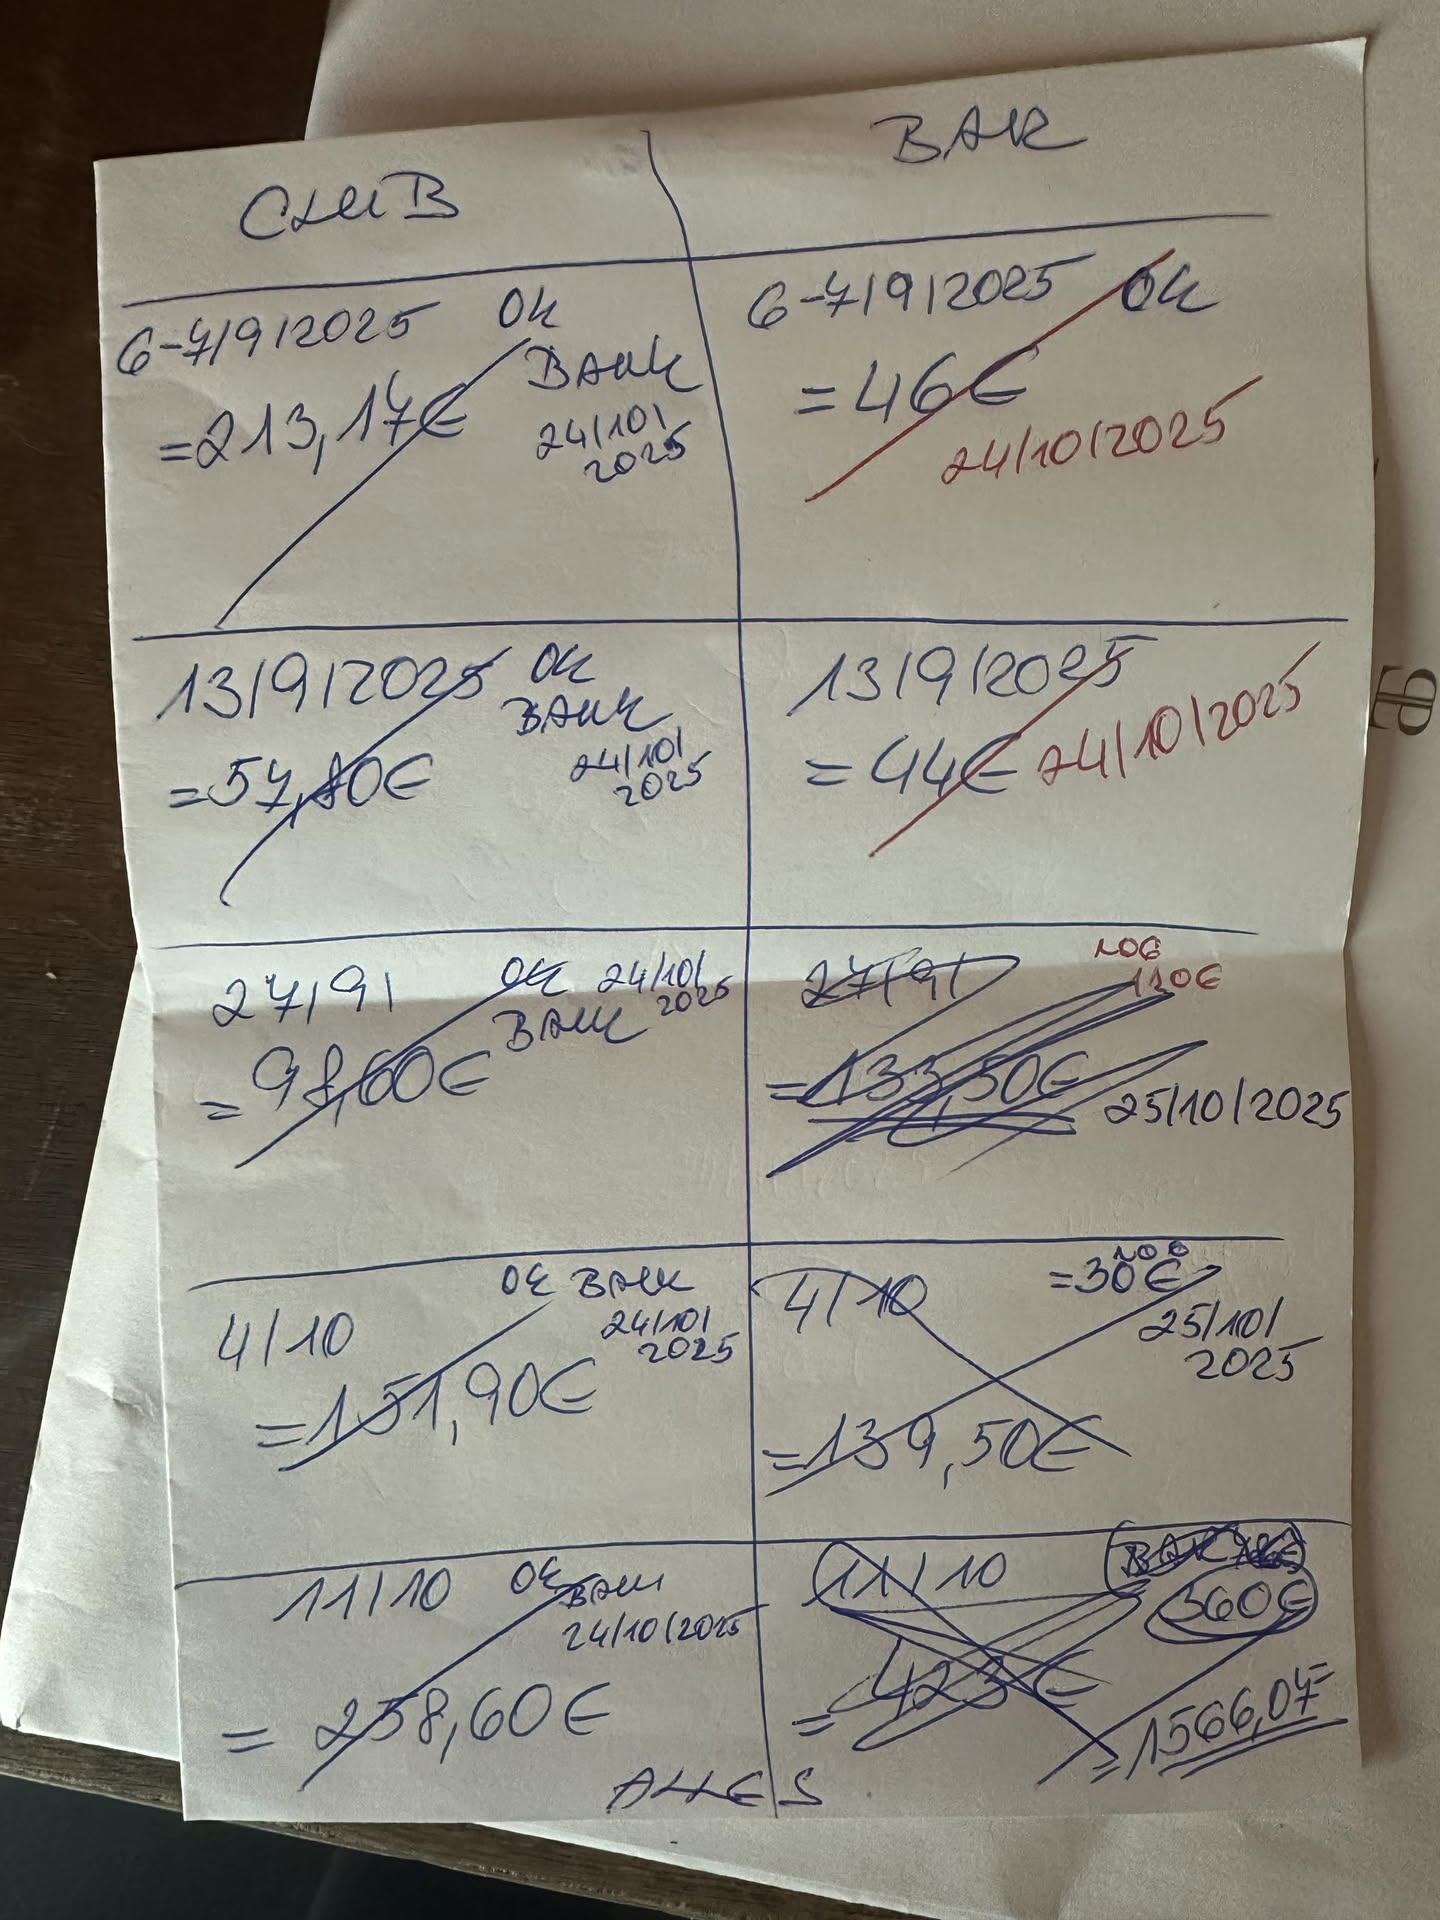 CLUB
BAR
6-7/9/2025 OK
=213,17€ BANK
24/10/
2025
6-7/9/2025 OK
=46€
24/10/2025
13/9/2025 OK
BANK
=57,80€ 24/10/
2025
13/9/2025
=44€ 24/10/2025
27/9/ OK 24/10/
2025
BANK
=98,60€
27/9/
20€
110€
=133,50€
25/10/2025
4/10 OK BANK
24/10/
2025
=151,90€
4/10 =30€
25/10/
2025
=139,50€
11/10 OK
BANK
24/10/2025
=258,60€
11/10 BAR
360€
=423€
=1566,07
ALLES